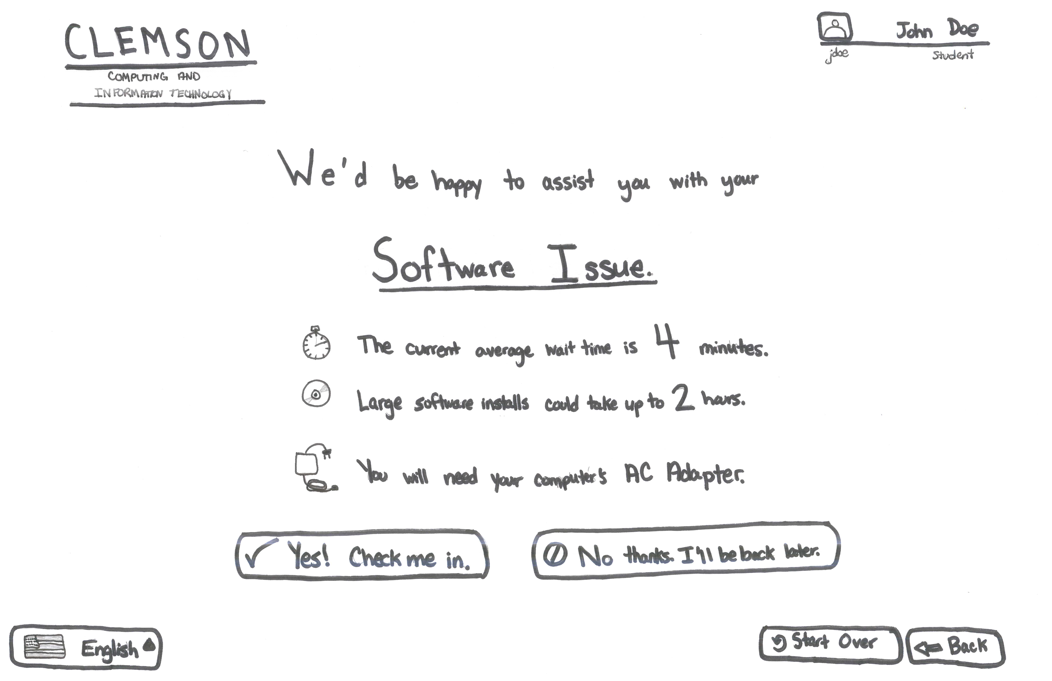 CLEMSON
COMPUTING AND
INFORMATION TECHNOLOGY
John Doe
jdoe
Student
We'd be happy to assist you with your
Software Issue.
The current average wait time is 4 minutes.
Large software installs could take up to 2 hours.
You will need your computer's AC Adapter.
Yes! Check me in.
No thanks. I'll be back later.
English
Start Over
Back